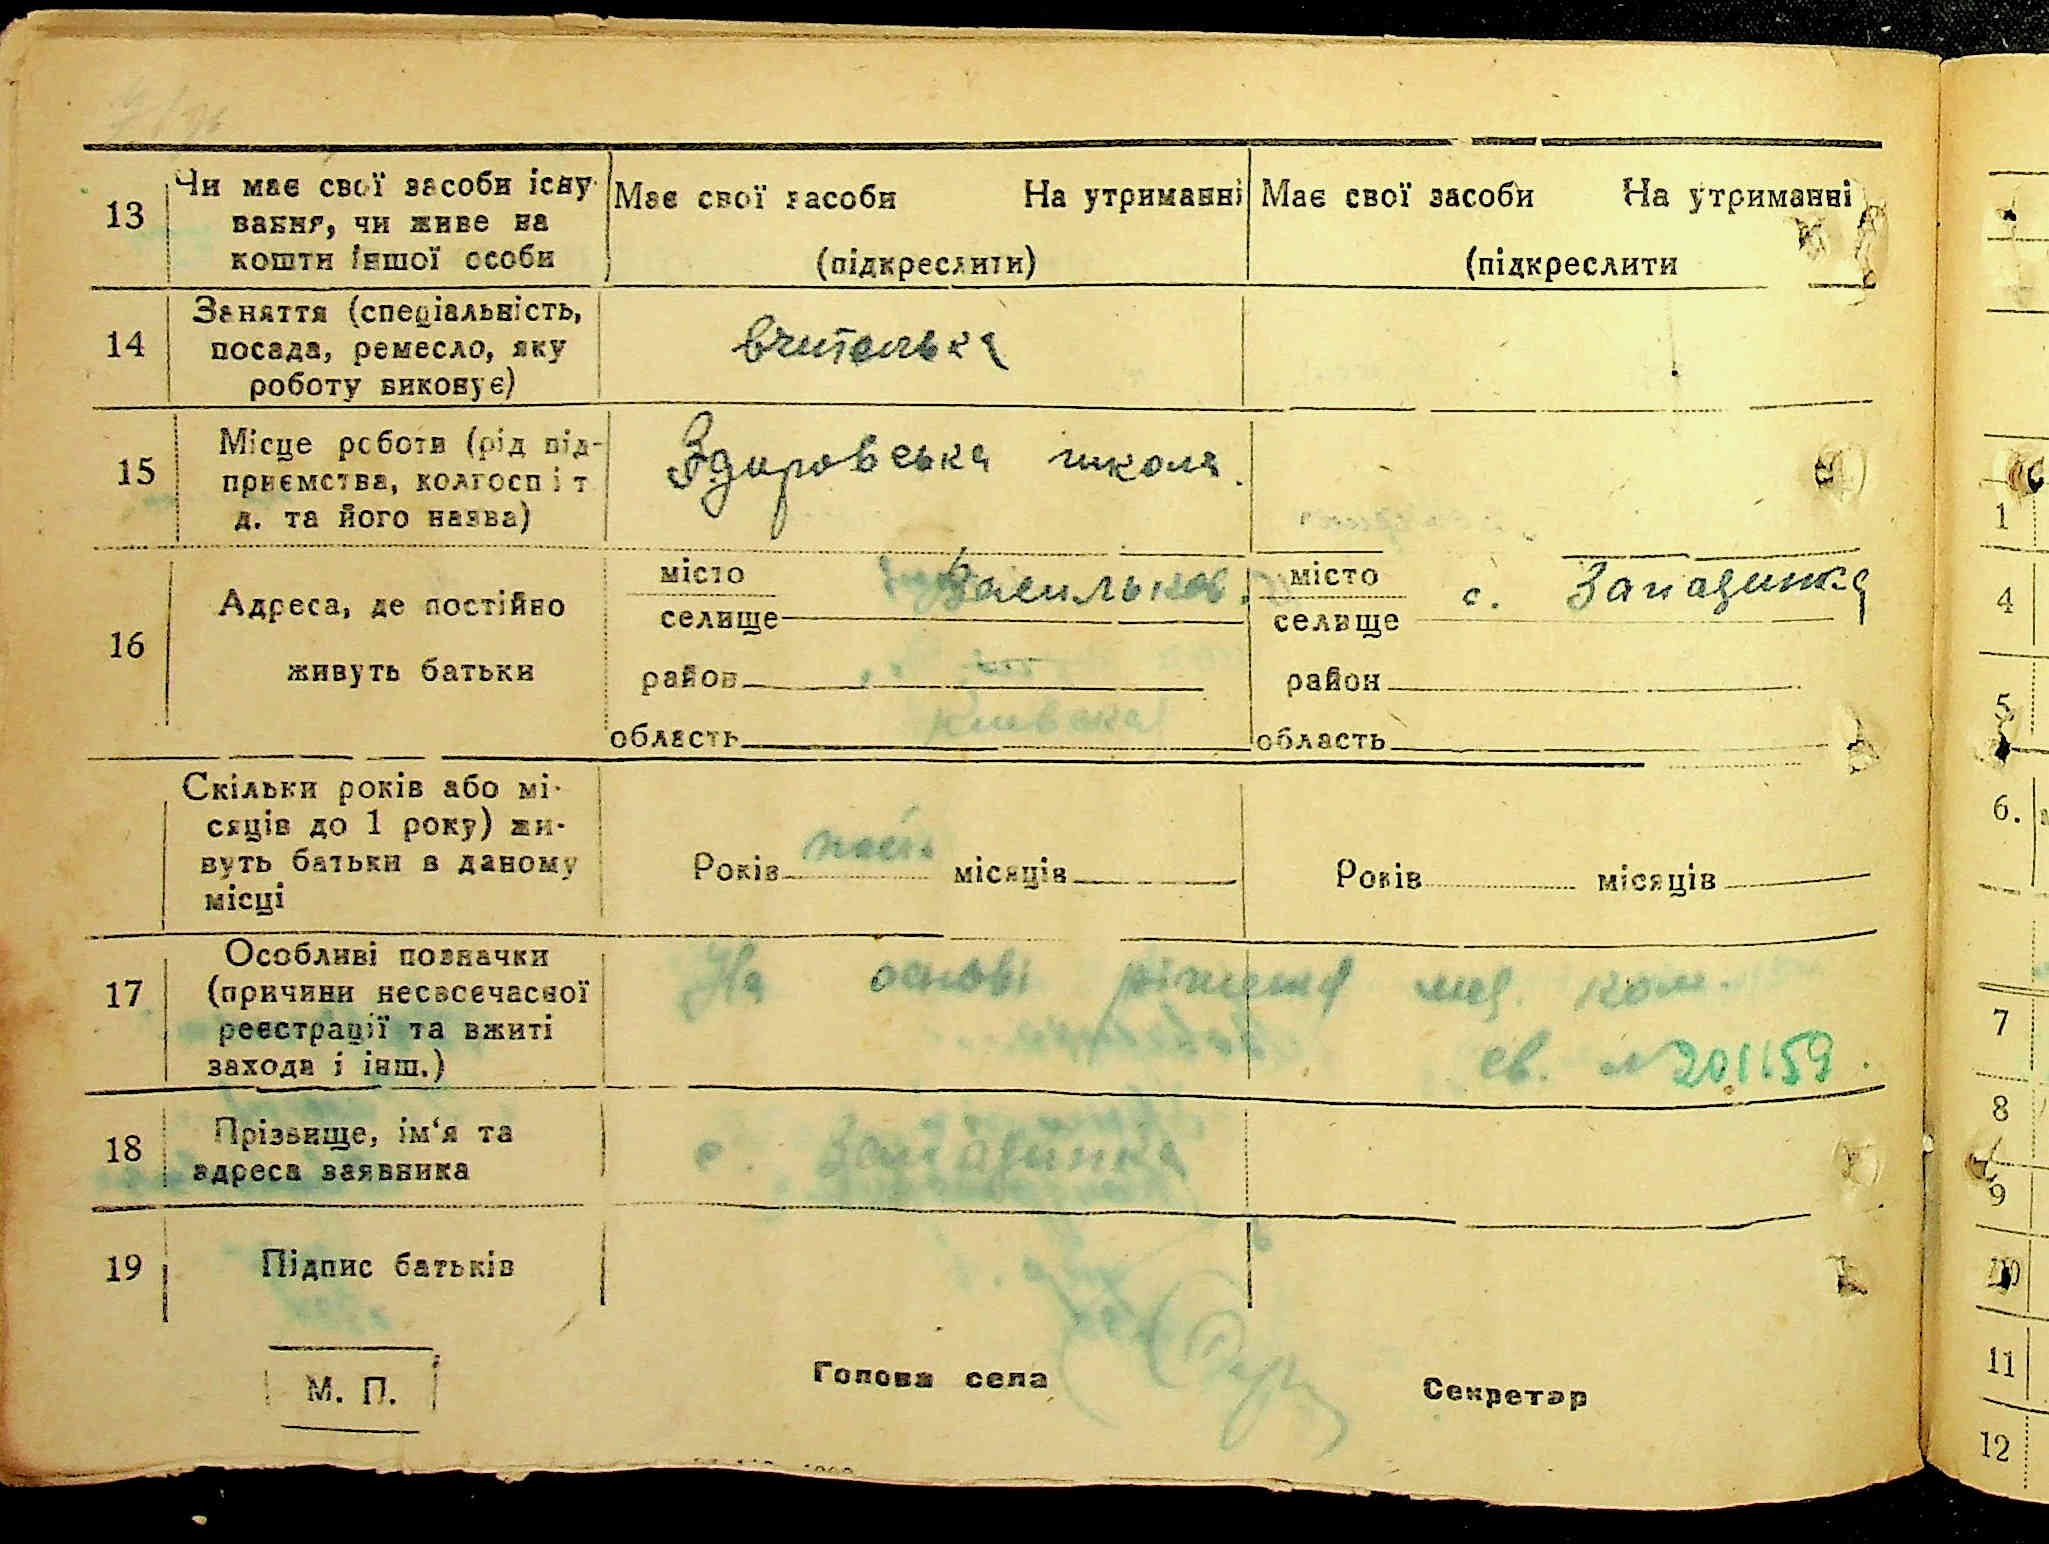 13 Чи має свої засоби існу- Має свої засоби На утриманні Має свої засоби На утриманні
вання, чи живе на
кошти іншої особи (підкреслити) (підкреслити
14 Заняття (спеціальність,
посада, ремесло, яку вчителька
роботу виконує)
15 Місце роботи (рід під- Здоровська школа.
приємства, колгосп і т
д. та його назва)
16 Адреса, де постійно
живуть батьки
місто Васильков
селище
район
область Київська
місто с. Западинка
селище
район
область
Скільки років або мі-
сяців до 1 року) жи-
вуть батьки в даному
місці
Років пост. місяців Років місяців
17 Особливі позначки
(причини несвоєчасної
реєстрації та вжиті
заходи і інш.)
На основі рішення мед. ком.
св. № 201159.
18 Прізвище, ім‘я та
адреса заявника
с. Западинка
19 Підпис батьків
М. П. Голова села Секретар
1
4
5
6.
7
8
9
10
11
12